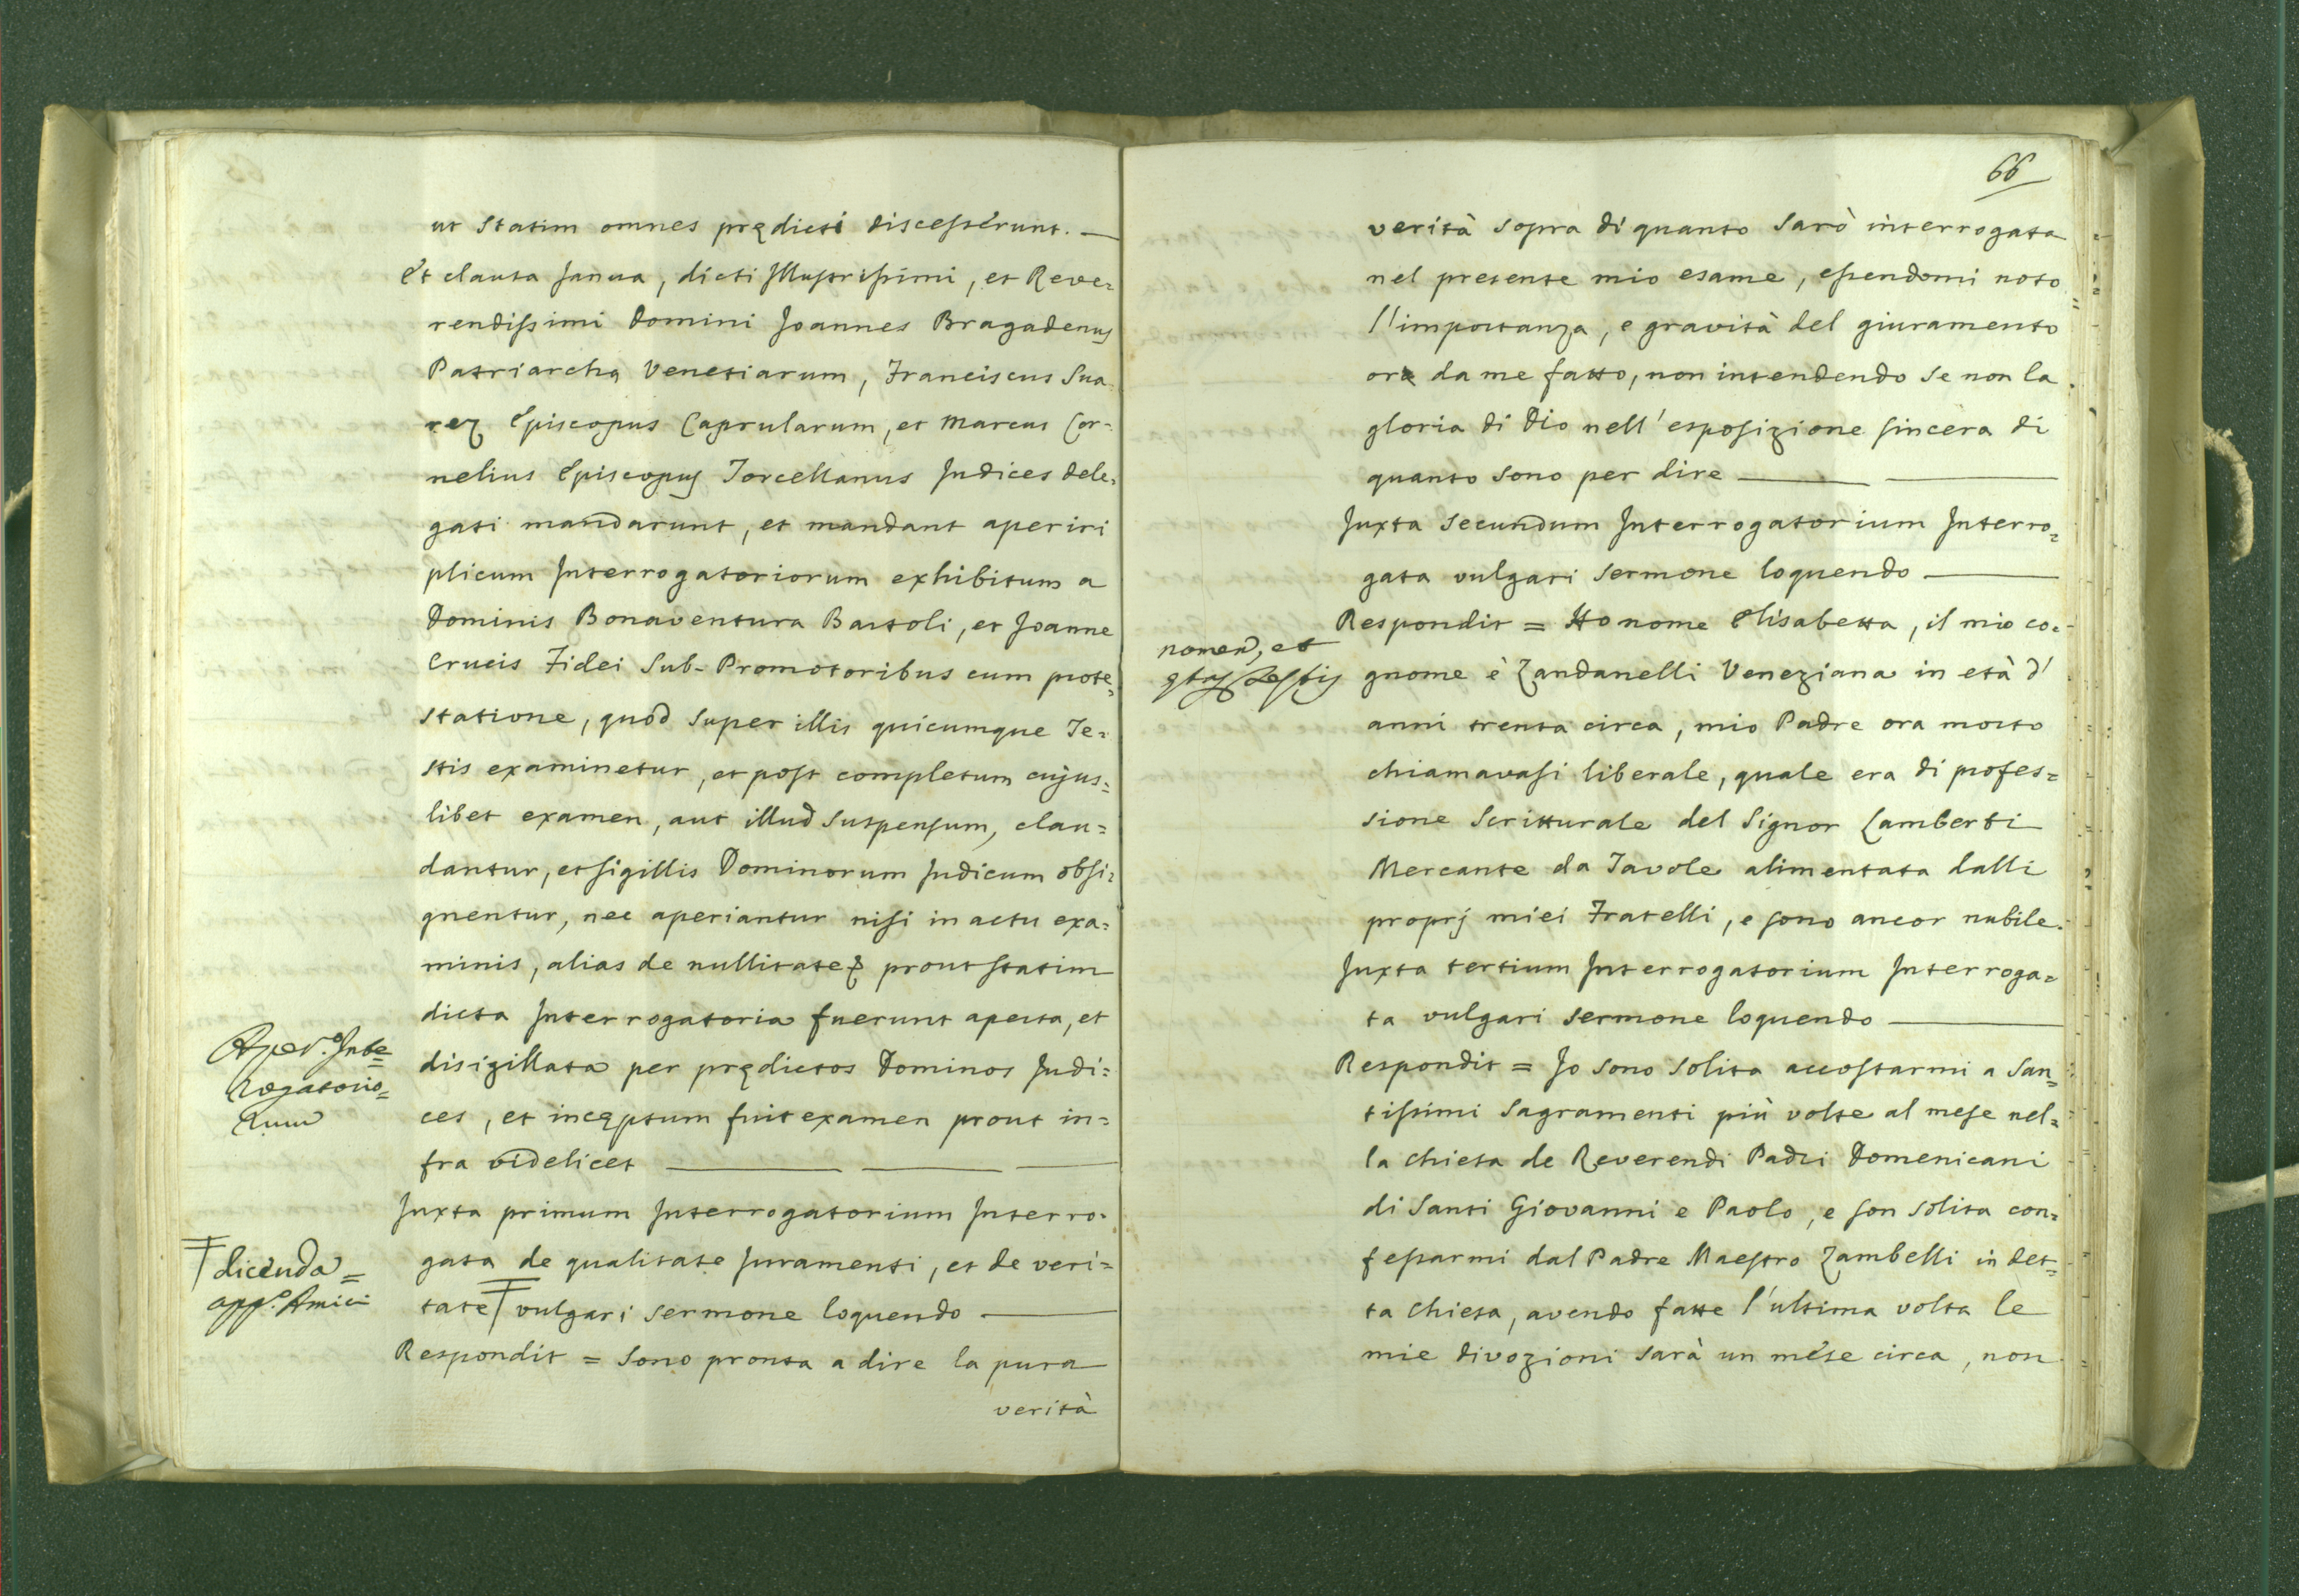 ut statim omnes prędicti discesserunt. —
Et clausa Janua, dicti Illustrissimi, et Reve=
rendissimi Domini Joannes Bragadenus
Patriarchą Venetiarum, Franciscus Sua
rez Episcopus Caprularum, et Marcus Cor-
nelius Episcopus Torcellanus Judices dele=
gati mandarunt, et mandant aperiri
plicum Interrogatoriorum exhibitum a
Dominis Bonaventura Bartoli, et Joanne
Crucis Fidei Sub-Promotoribus cum prote=
statione, quod super illis quicumque Te=
stis examinetur, et post completum cujus=
libet examen, aut illud suspensum, clau=
dantur, et sigillis Dominorum Judicum obsi=
gnentur, nec aperiantur nisi in actu exa=
minis, alias de nullitate prout statim
dicta Interrogatoria fuerunt aperta, et
Aper.º Inte=
rogatorio=
rum
disigillata per prędictos Dominos Judi=
ces, et incęptum fuit examen prout in=
fra videlicet —— —— ——
Juxta primum Interrogatorium Interro=
gata de qualitate Juramenti, et de veri=
dicenda=
app.º Amici
tate vulgari sermone loquendo ——
Respondit = Sono pronta a dire la pura
verità
66
verità sopra di quanto sarò interrogata
nel presente mio esame, essendomi noto
l'importanza, e gravità del giuramento
ora da me fatto, non intendendo se non la
gloria di Dio nell'esposizione sincera di
quanto sono per dire —— ——
Juxta secundum Interrogatorium Interro=
gata vulgari sermone loquendo ——
Respondit = Ho nome Elisabetta, il mio co=
nomen, et
testis
gnome è Zandanelli Veneziana in età d'
anni trenta circa, mio Padre ora morto
chiamavasi liberale, quale era di profes=
sione Scritturale del Signor Lamberti
Mercante da Tavole alimentata dalli
proprj miei Fratelli, e sono ancor nubile.
Juxta tertium Interrogatorium Interroga=
ta vulgari sermone loquendo ——
Respondit = Io sono solita accostarmi a San=
tissimi Sagramenti più volte al mese nel=
la chiesa de Reverendi Padri Domenicani
di Santi Giovanni e Paolo, e son solita con=
fessarmi dal Padre Maestro Zambelli in det=
ta Chiesa, avendo fatte l'ultima volta le
mie divozioni sarà un mese circa, non